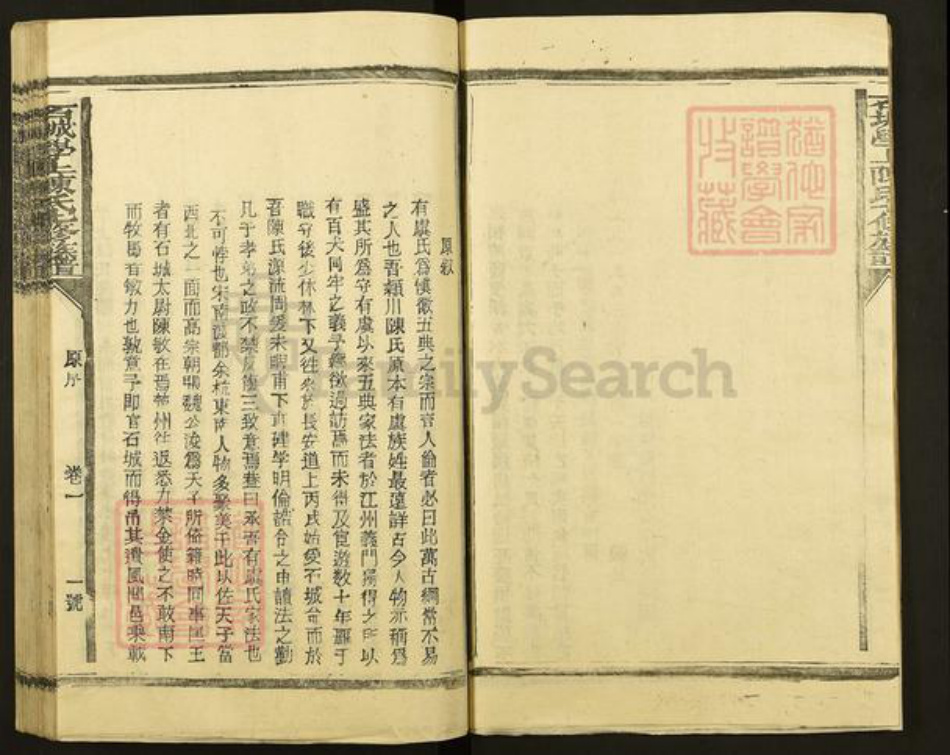 原敘
有虞氏為慎徽五典之宗而言人倫者必曰此萬古綱常不易
之人也吾潁川陳氏原本有虞族姓最遠詳古今人物亦稱為
盛其所為守有虞以來五典家法者於江州義門獨得之所以
有百犬同牢之義予嘗欲過訪焉而未得及宦遊數十年罷于
職守後少休林下又往來於長安道上丙戌始受石城命而於
吾陳氏源流周爰未暇甫下車建學明倫誥令之申讀法之勸
凡于孝弟之政不禁反復三致意焉蓋曰承吾有虞氏家法也
不可悖也宋南渡都余杭東南人物多聚美于此以佐天子當
西北之一面而高宗朝張魏公浚為天子所倚籍時同事
者有石城太尉陳敏在焉 州往返悉力禁金使之不敢南下
而牧 皆敏力也孰意予即官石城而得弔其遺風 邑乘載
石城學上陳氏 修族譜
原序
卷一
一號
家譜學會收藏
FamilySearch